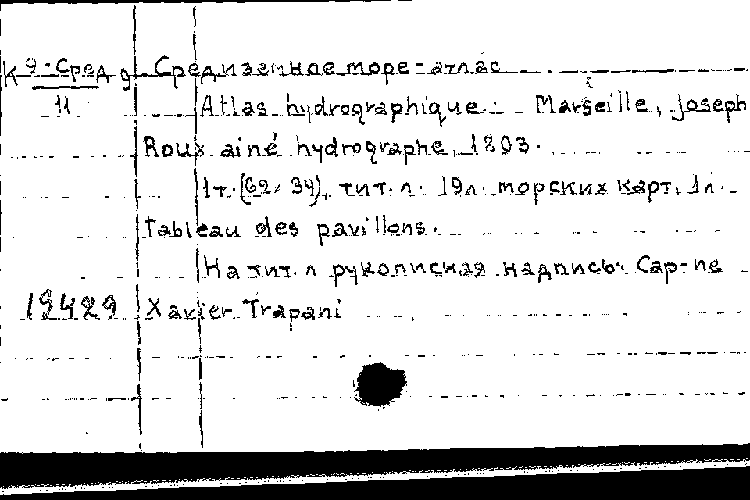 К 9-Сред 9 Средиземное море-атлас
11 Atlas hydrographique. Marseille, Joseph
Roux ainé hydrographe, 1803.
1т. (62×94), тит. л. 19л. морских карт, 1л.
Tableau des pavillons.
На тит. л рукописная надпись: Cap-ne
19429 Xavier Trapani